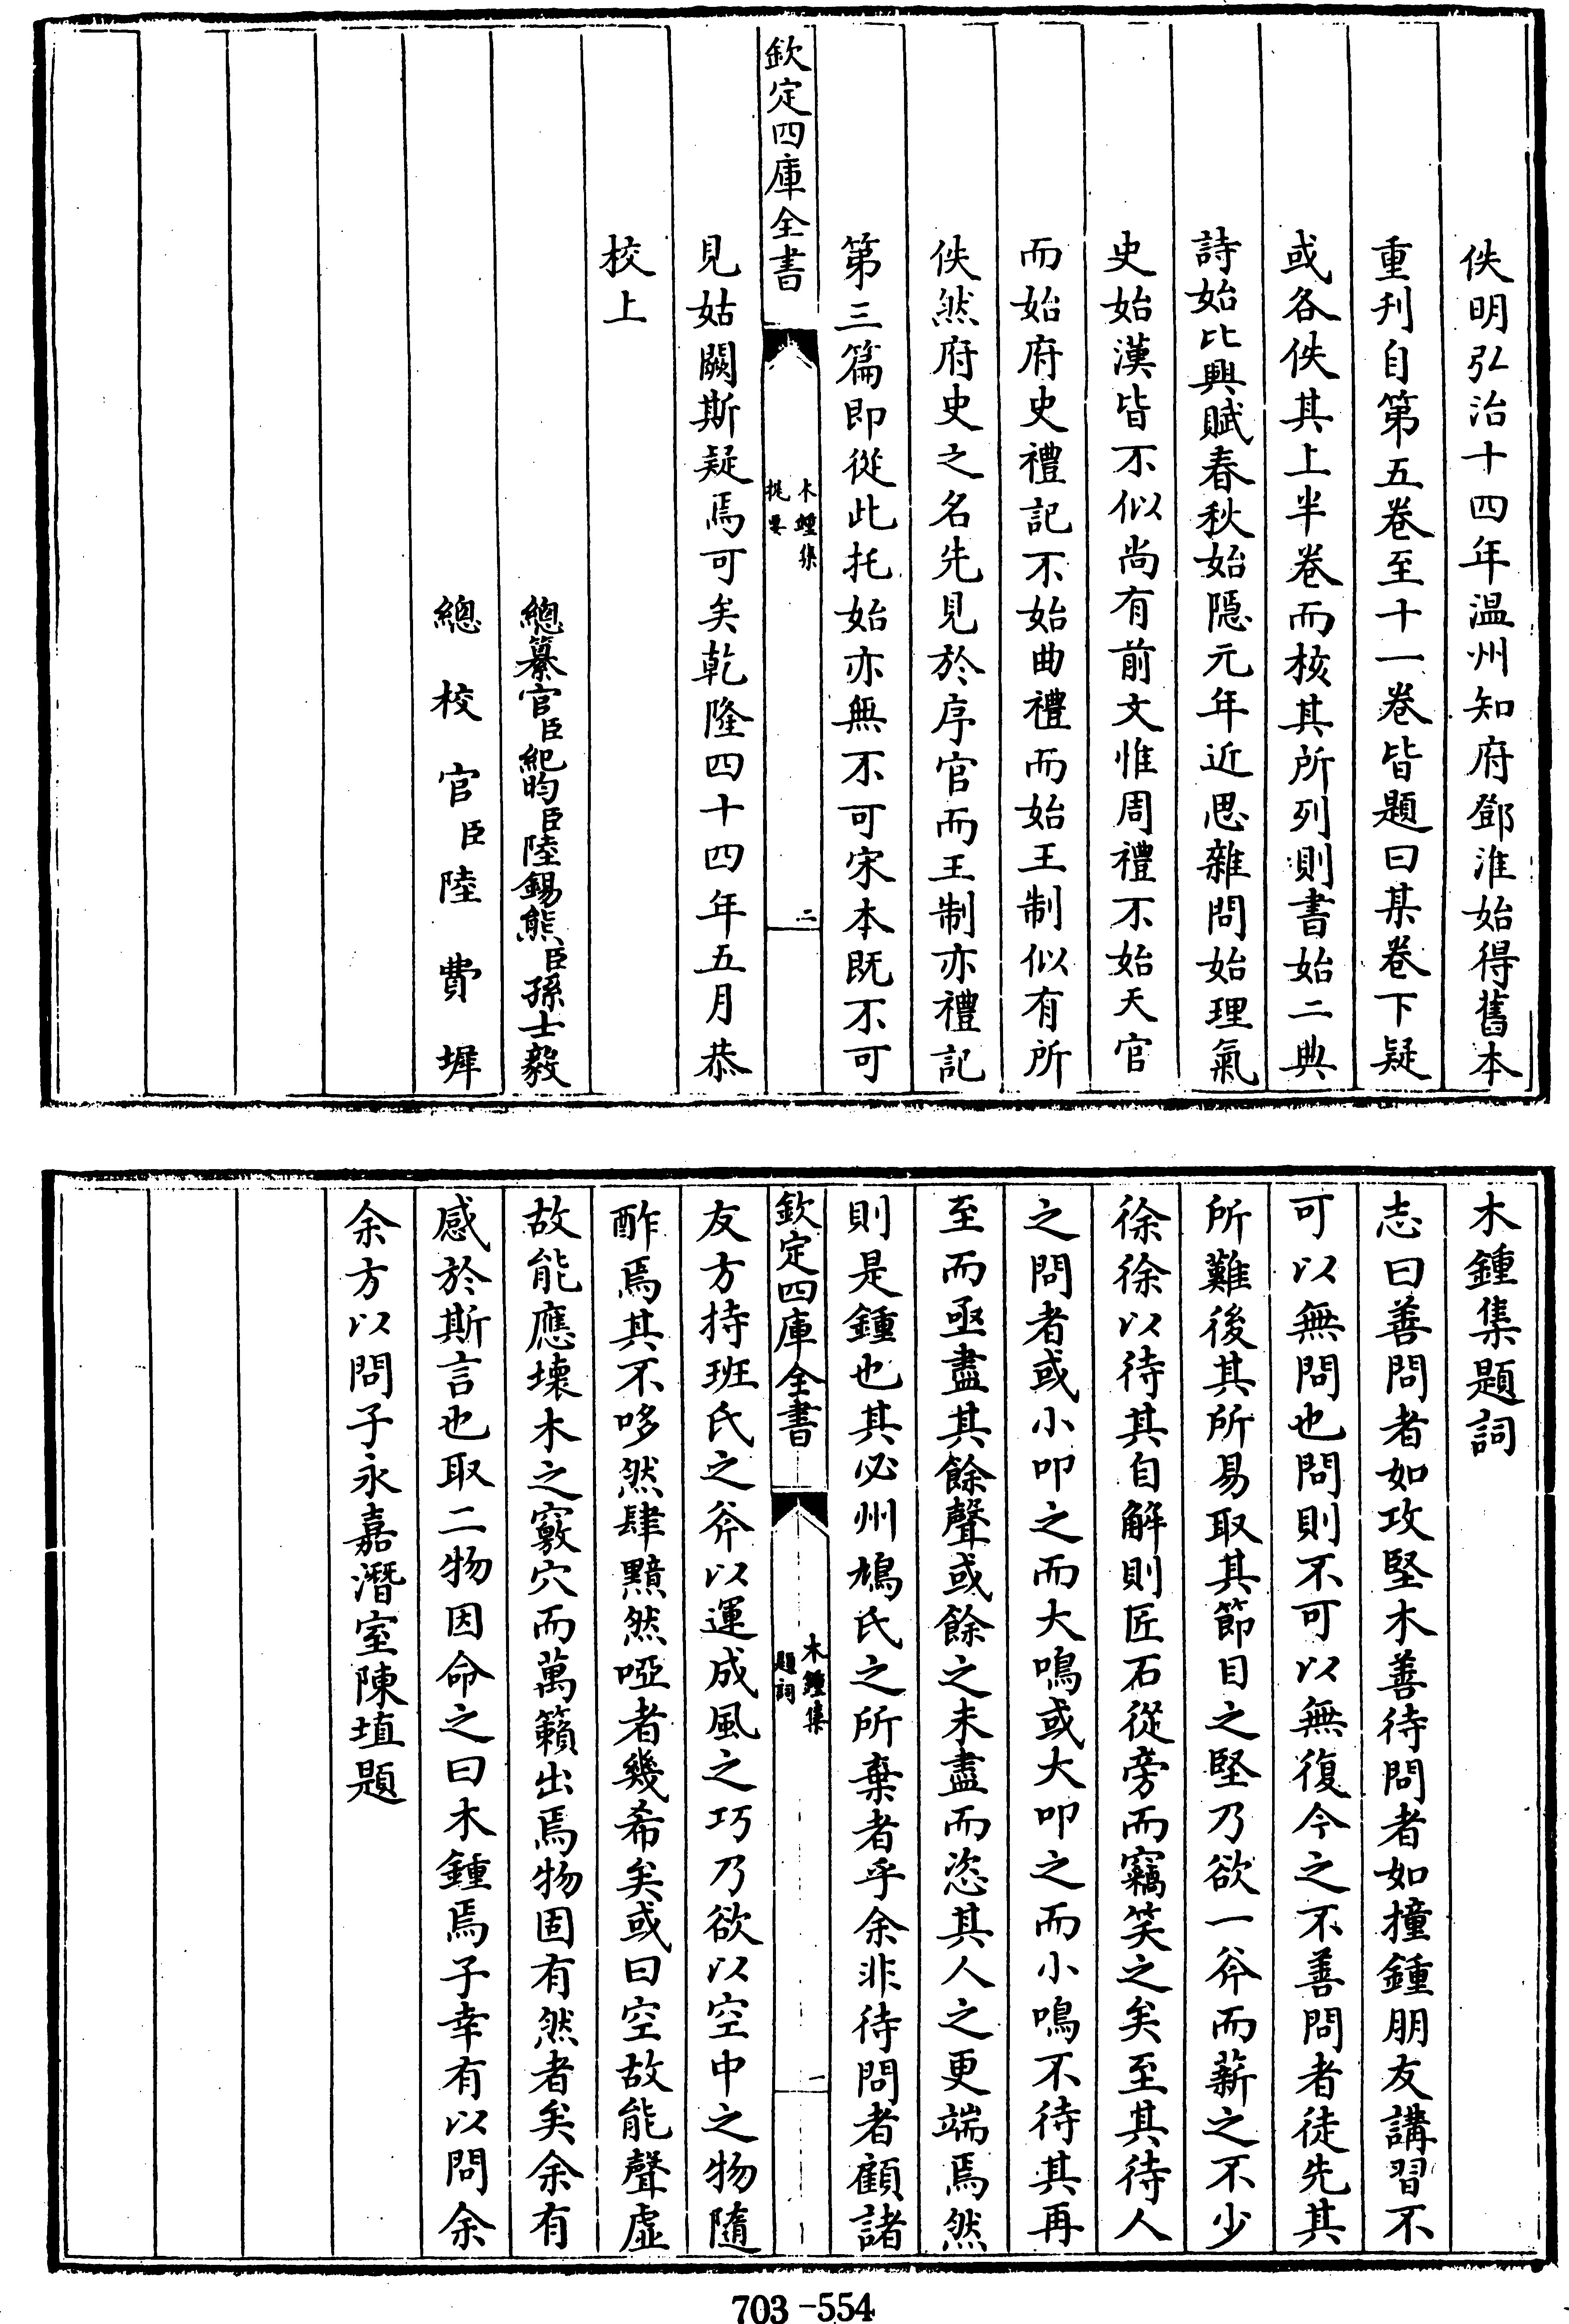 佚明弘治十四年温州知府鄧淮始得舊本
重刋自第五卷至十一卷皆題曰某卷下疑
或各佚其上半卷而核其所列則書始二典
詩始比興賦春秋始隠元年近思雜問始理氣
史始漢皆不似尚有前文惟周禮不始天官
而始府史禮記不始曲禮而始王制似有所
佚然府史之名先見於序官而王制亦禮記
第三篇即從此托始亦無不可宋本既不可
欽定四庫全書
木鍾集
提要
二
見姑闕斯疑焉可矣乾隆四十四年五月恭
校上
總纂官臣紀昀臣陸錫熊臣孫士毅
總校官臣陸費墀
木鍾集題詞
志曰善問者如攻堅木善待問者如撞鍾朋友講習不
可以無問也問則不可以無復今之不善問者徒先其
所難後其所易取其節目之堅乃欲一斧而薪之不少
徐徐以待其自解則匠石從旁而竊笑之矣至其待人
之問者或小叩之而大鳴或大叩之而小鳴不待其再
至而亟盡其餘聲或餘之未盡而恣其人之更端焉然
則是鍾也其必州鳩氏之所棄者乎余非待問者顧諸
欽定四庫全書
木鍾集
題詞
一
友方持班氏之斧以運成風之巧乃欲以空中之物隨
酢焉其不哆然肆黯然啞者幾希矣或曰空故能聲虛
故能應壞木之竅穴而萬籟出焉物固有然者矣余有
感於斯言也取二物因命之曰木鍾焉子幸有以問余
余方以問子永嘉潛室陳埴題
703-554